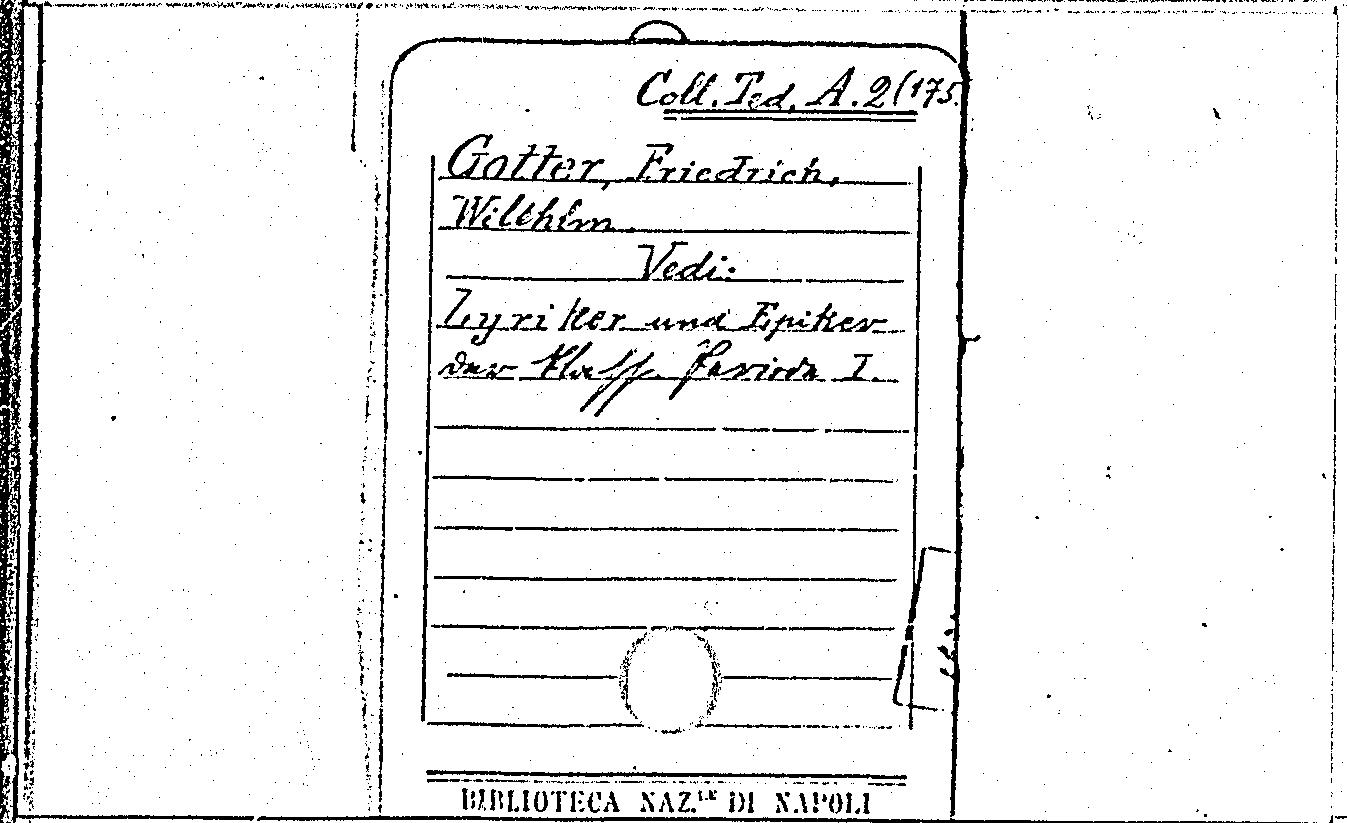 Coll. Ted. A. 2(175.
Gotter, Friedrich,
Wilhelm.
Vedi:
Lyriker und Epiker
der klass. Periode I.
BIBLIOTECA NAZ.LE DI NAPOLI